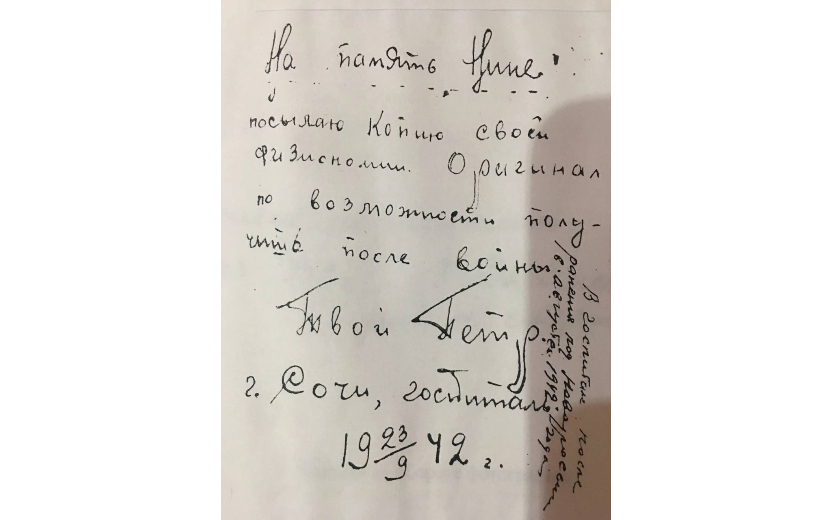 На память Нине!
посылаю копию своей
физиономии. Оригинал
по возможности полу-
чить после войны
Твой Петр.
г. Сочи, госпиталь
19 23/9 42 г.
В госпитале после
ранения под Новороссий
в августе 1942 года